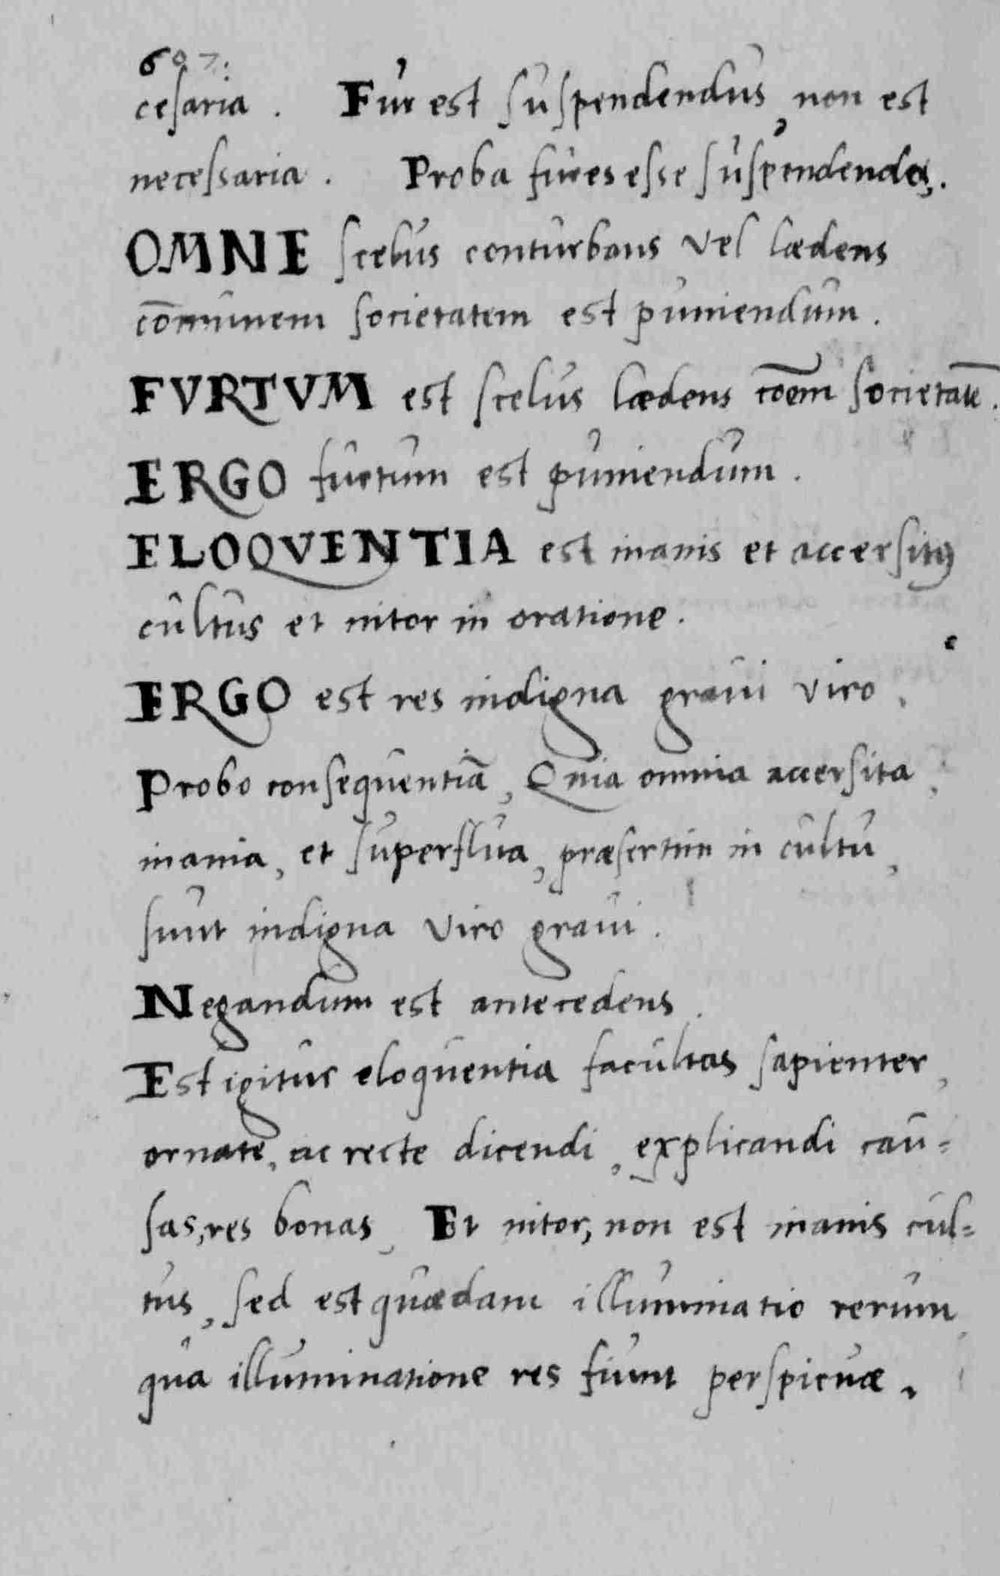 607.
cesaria. Fur est suspendendus, non est
necessaria. Proba fures esse suspendendos.
OMNE scelus conturbans vel lædens
com̄unem societatem est puniendum.
FVRTVM est scelus lædens co͞em societatē.
ERGO furtum est puniendum.
ELOQVENTIA est inanis et accersitꝯ
cultus et nitor in oratione.
ERGO est res indigna graui viro.
Probo consequentiā, Quia omnia accersita,
inania, et superflua, præsertim in cultu,
sunt indigna viro graui.
Negandum est antecedens.
Est igitur eloquentia facultas sapienter,
ornate, ac recte dicendi, explicandi cau=
sas, res bonas, Et nitor, non est inanis cul=
tus, sed est quædam illuminatio rerum,
qua illuminatione res fiunt perspicuæ.